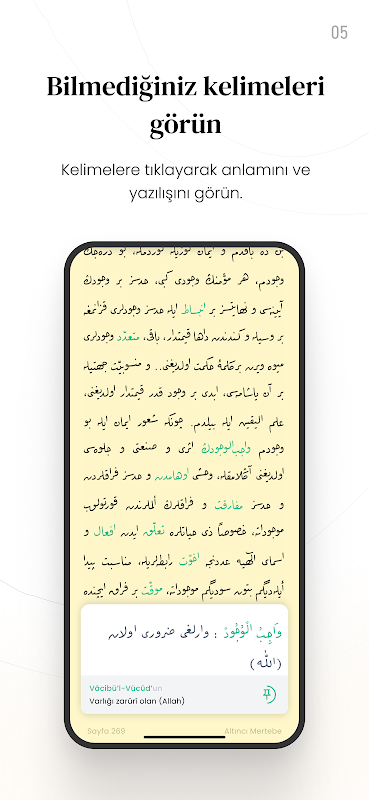 05
Bilmediğiniz kelimeleri
görün
Kelimelere tıklayarak anlamını ve
yazılışını görün.
وجودم، هر مؤمنڭ وجودی كبی، حدسز بر وجودڭ
بر وسیله و كندندن داها قیمتدار، باقی، متعدّد وجودلری
میوه ویرن بر كلمهٔ حكمت اولدیغنی.. و منسوبیّت جهتیله
بر آن یاشامسی، ابدی بر وجود قدر قیمتدار اولدیغنی،
علم الیقین ایله بیلدم. چونكه شعور ایمان ایله بو
وجودم واجب‌الوجودڭ اثری و صنعتی و جلوه‌سی
اولدیغنی آڭلامقله، وحشی اوهامدن و حدسز فراقلردن
و حدسز مفارقت و فراقلرڭ ألملرندن قورتولوب
موجوداته، خصوصًا ذی حیاتلره تعلّق ایدن افعال و
اسمای الٰهیّه عددنجه اخوّت رابطه‌لریله، مناسبت پیدا
ایله‌دیگم بتون سودیگم موجوداته، موقّت بر فراق ایچنده
وَاجِبُ الْوُجُودْ : وارلغی ضروری اولان
(اللّٰه)
Vâcibü'l-Vücûd'un
Varlığı zarûrî olan (Allah)
Sayfa 269
Altıncı Mertebe